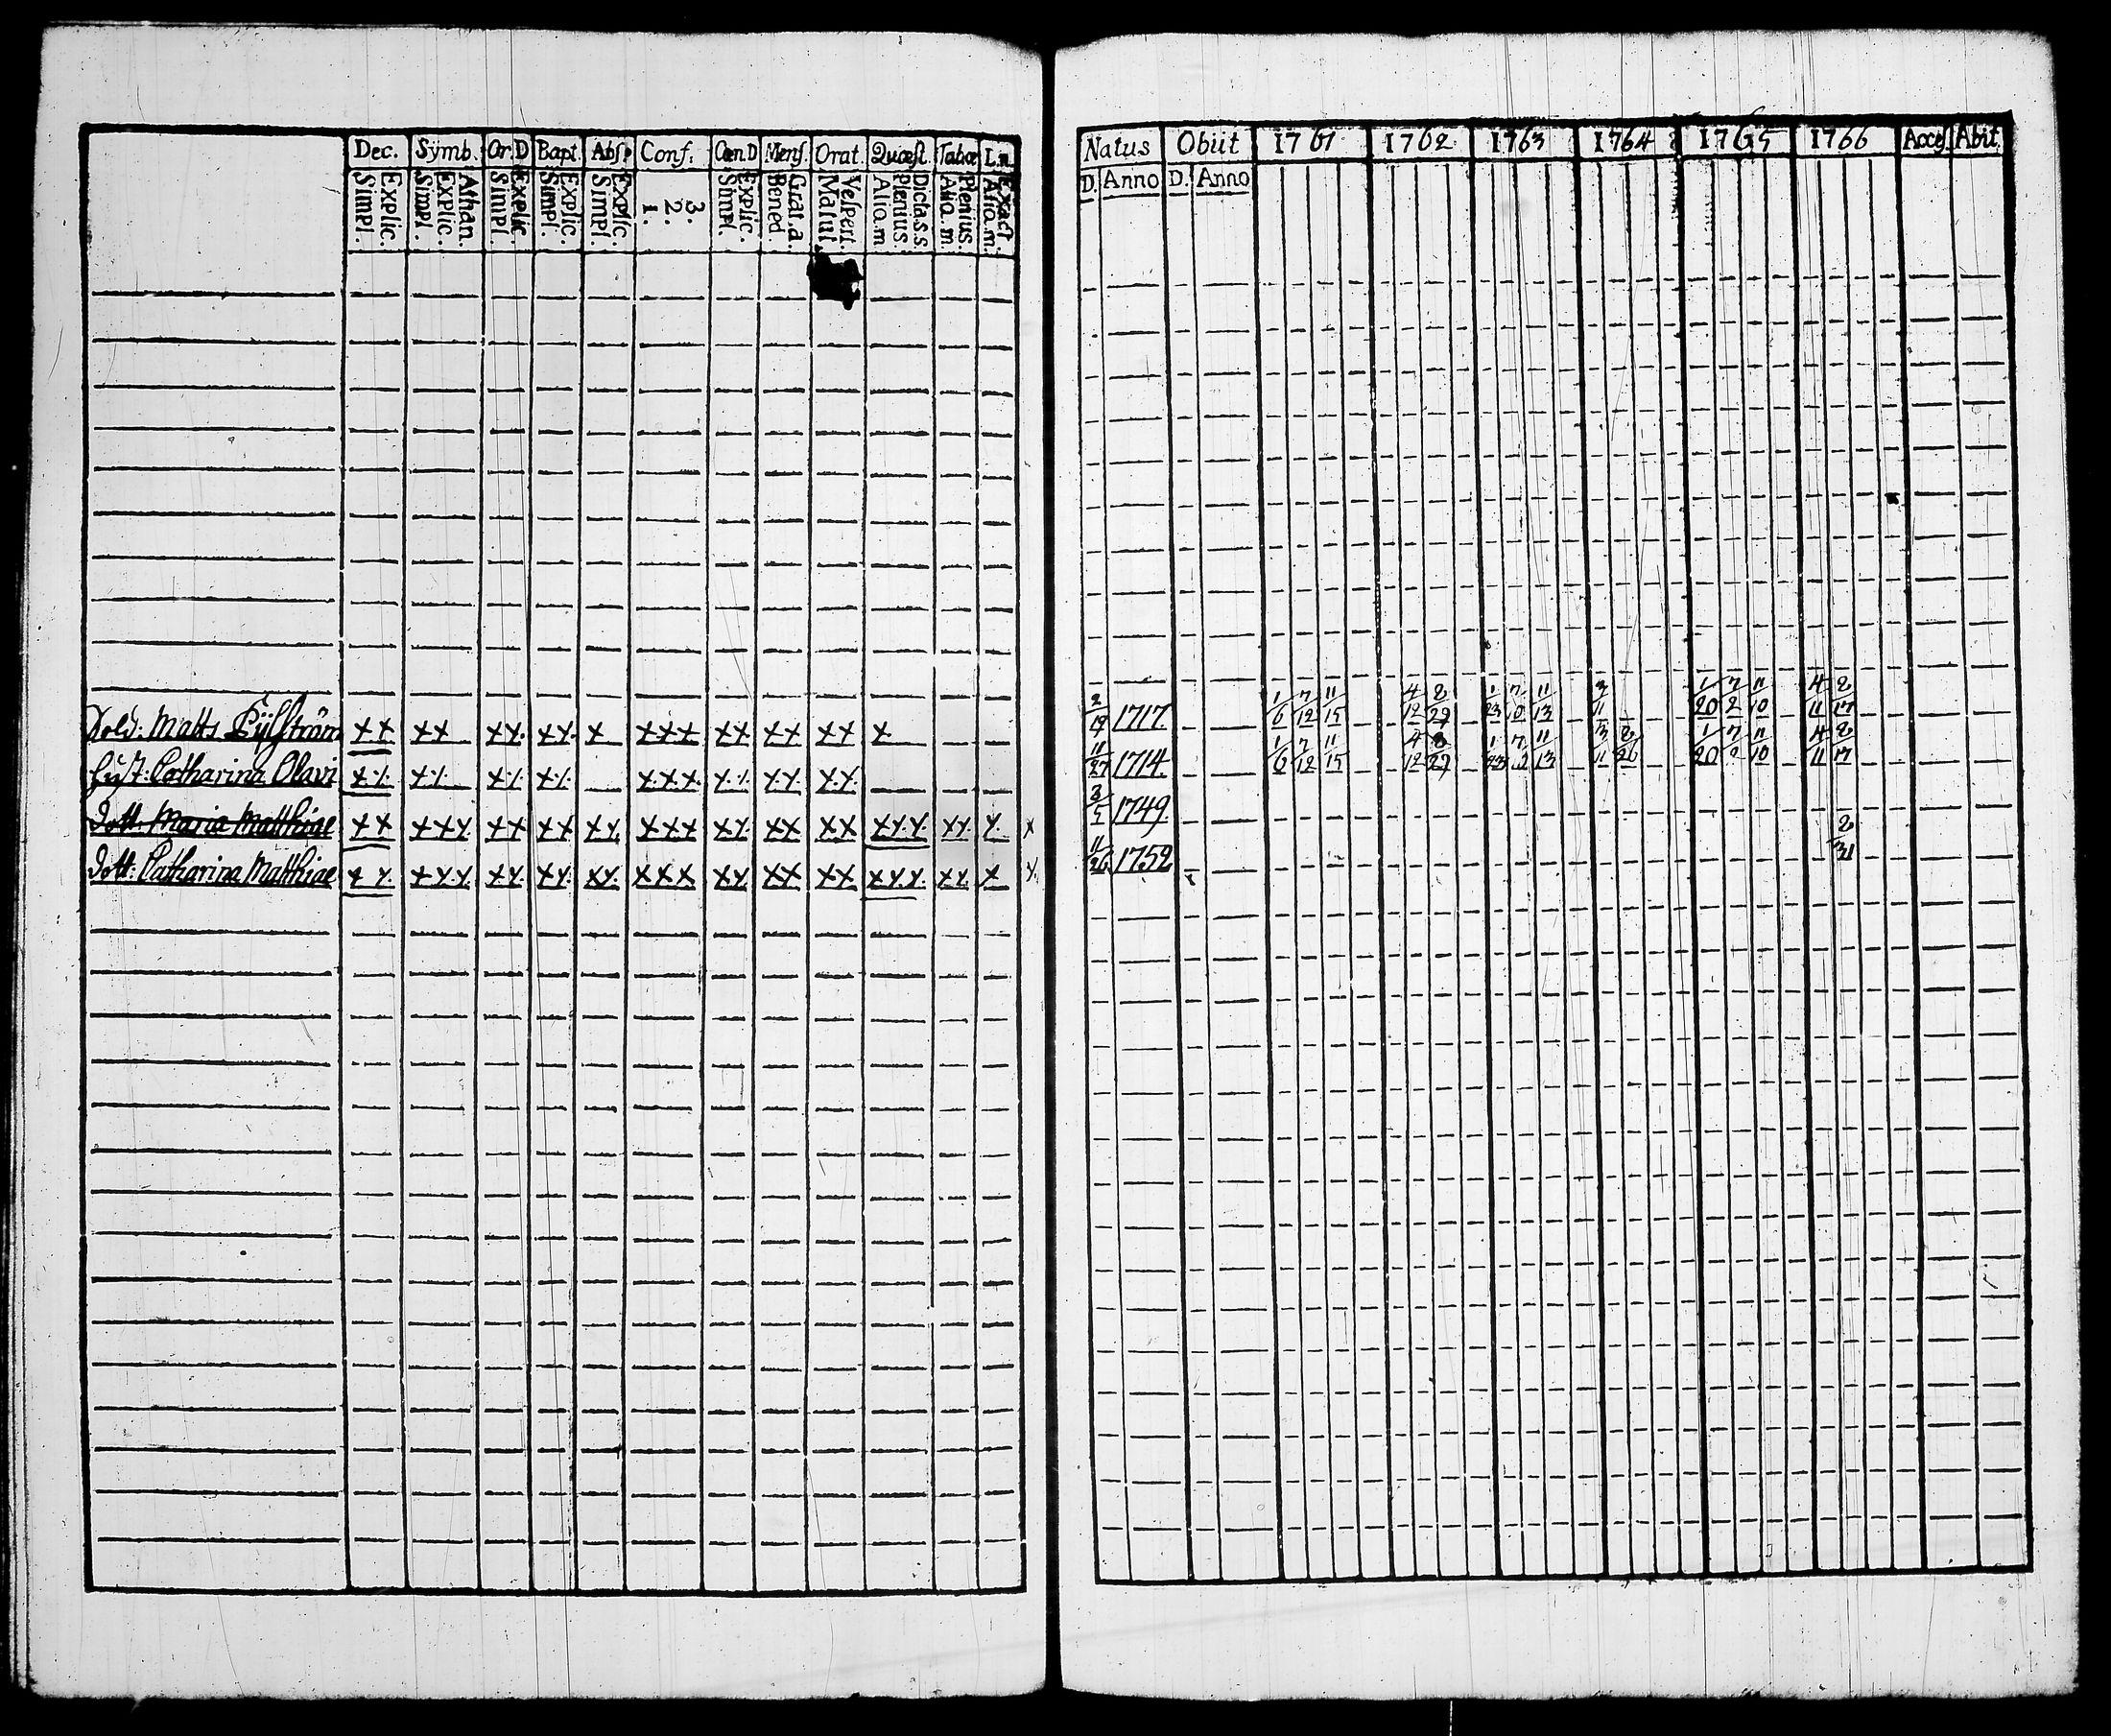 Dec. Symb. Or.D Bapt. Abs. Conf. CœnD Mens. Orat. Quæst. Tabœ L.n
Explic. Simpl. Athan. Explic. Simpl. Explic. Simpl. Explic. Simpl. Explic. Simpl. 3. 2. 1. Explic. Simpl. Grat.a. Bened. Vespert. Matut. Dicta.s.s. Plenius. Aliq.m Plenius. Aliq.m. Exact. Aliq.m.
Sold: Matts x x x x x x x x x x x x x x x x x x x
Hust: Catharina Olavi x x x x x x x x x x x x x x x x x
Dott. Maria Matthiae x x x x x x x x x x x x x x x x x x x x x x x x x x x x
Dott: Catharina Matthiae x x x x x x x x x x x x x x x x x x x x x x x x x x x x
Natus Obiit 1761 1762 1763 1764 1765 1766 Access. Abit.
D. Anno D. Anno
2/19 1717. 1/6 7/12 11/15 4/12 8/29 1/23 7/10 11/13 3/11 1/20 7/2 11/10 4/11 8/17
11/27 1714. 1/6 7/12 11/15 4/12 8/29 1/23 11/13 3/11 8/26 1/20 7/2 11/10 4/11 8/17
3/5 1749.
11/26 1752 8/31